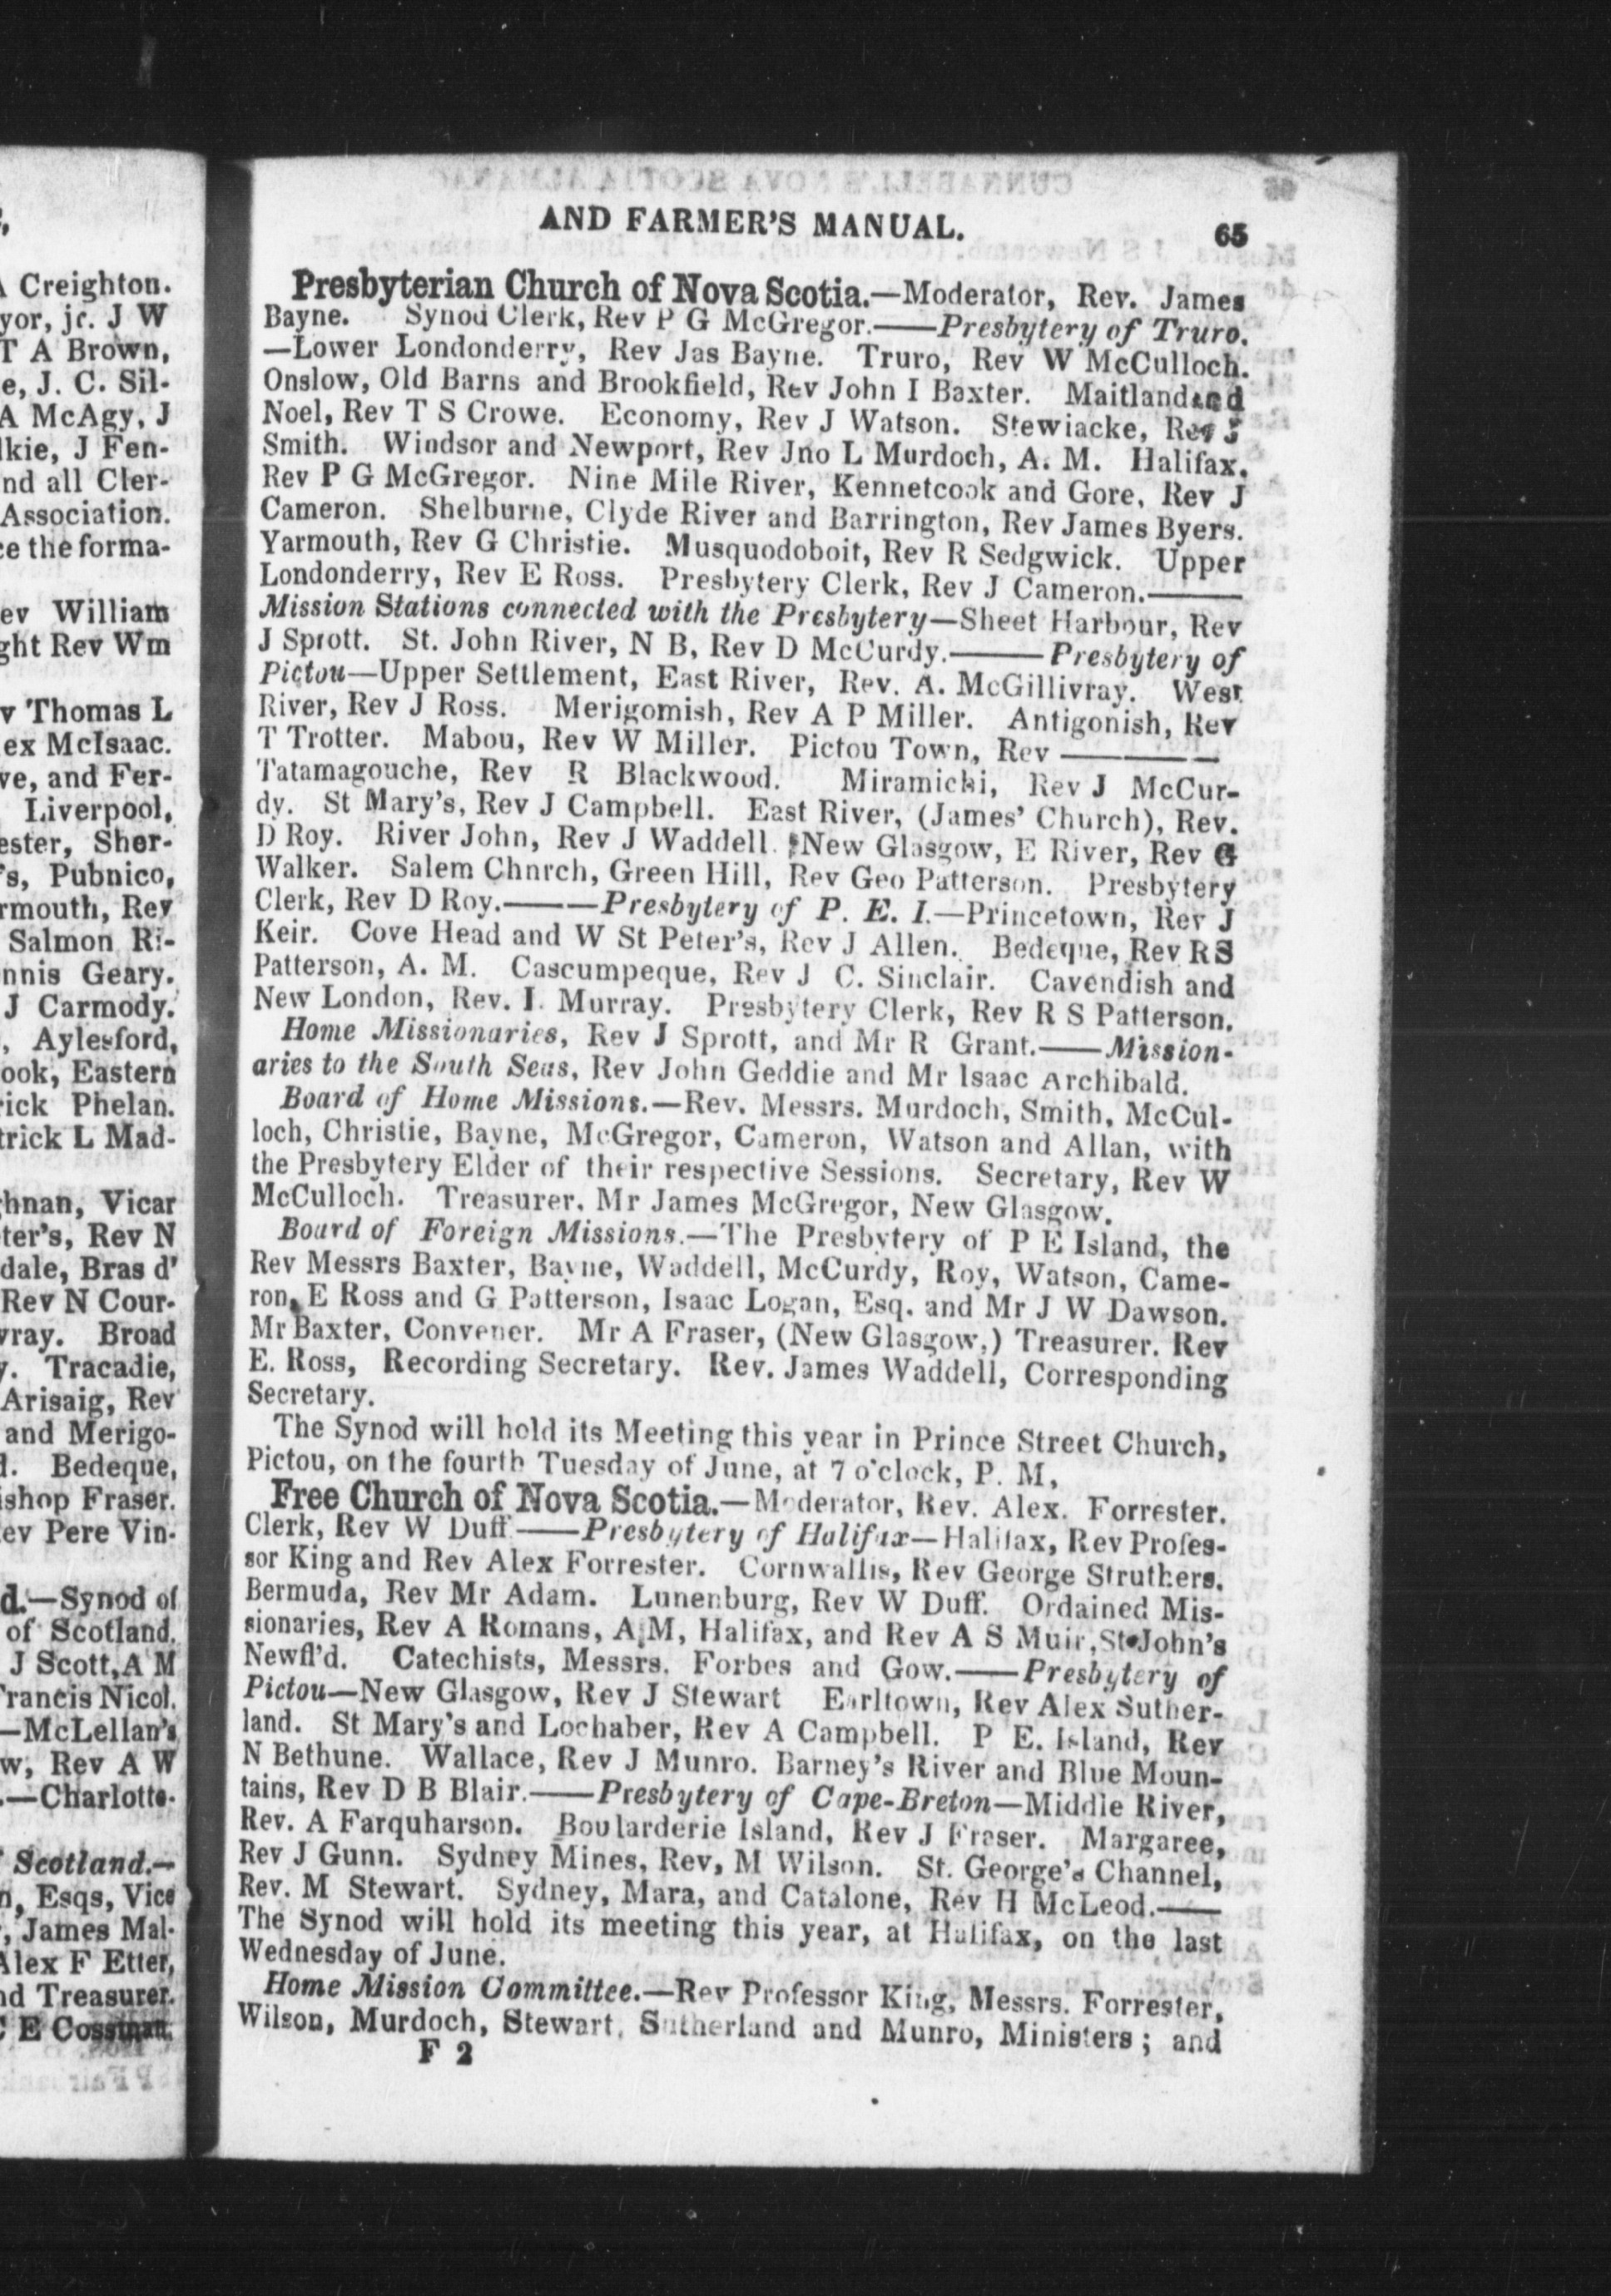 A Creighton.
yor, jr. J W
T A Brown,
e, J. C. Sil-
A McAgy, J
lkie, J Fen-
nd all Cler-
Association.
ce the forma-
ev William
ght Rev Wm
v Thomas L
ex McIsaac.
ve, and Fer-
Liverpool,
ester, Sher-
's, Pubnico,
rmouth, Rev
Salmon Ri-
nnis Geary.
J Carmody.
, Aylesford,
ook, Eastern
rick Phelan.
trick L Mad-
hnan, Vicar
ter's, Rev N
dale, Bras d'
Rev N Cour-
vray. Broad
y. Tracadie,
Arisaig, Rev
and Merigo-
d. Bedeque,
ishop Fraser.
ev Pere Vin-
d.—Synod of
of Scotland.
J Scott, A M
rancis Nicol.
—McLellan's
w, Rev A W
.—Charlotte-
Scotland.—
n, Esqs, Vice
, James Mal-
Alex F Etter,
nd Treasurer.
C E Cossman.
AND FARMER'S MANUAL. 65
Presbyterian Church of Nova Scotia.—Moderator, Rev. James
Bayne. Synod Clerk, Rev P G McGregor.——Presbytery of Truro.
—Lower Londonderry, Rev Jas Bayne. Truro, Rev W McCulloch.
Onslow, Old Barns and Brookfield, Rev John I Baxter. Maitland and
Noel, Rev T S Crowe. Economy, Rev J Watson. Stewiacke, Rev J
Smith. Windsor and Newport, Rev Jno L Murdoch, A. M. Halifax,
Rev P G McGregor. Nine Mile River, Kennetcook and Gore, Rev J
Cameron. Shelburne, Clyde River and Barrington, Rev James Byers.
Yarmouth, Rev G Christie. Musquodoboit, Rev R Sedgwick. Upper
Londonderry, Rev E Ross. Presbytery Clerk, Rev J Cameron.——
Mission Stations connected with the Presbytery—Sheet Harbour, Rev
J Sprott. St. John River, N B, Rev D McCurdy.——Presbytery of
Pictou—Upper Settlement, East River, Rev. A. McGillivray. West
River, Rev J Ross. Merigomish, Rev A P Miller. Antigonish, Rev
T Trotter. Mabou, Rev W Miller. Pictou Town, Rev ————
Tatamagouche, Rev R Blackwood. Miramichi, Rev J McCur-
dy. St Mary's, Rev J Campbell. East River, (James' Church), Rev.
D Roy. River John, Rev J Waddell. New Glasgow, E River, Rev G
Walker. Salem Chnrch, Green Hill, Rev Geo Patterson. Presbytery
Clerk, Rev D Roy.———Presbytery of P. E. I.—Princetown, Rev J
Keir. Cove Head and W St Peter's, Rev J Allen. Bedeque, Rev R S
Patterson, A. M. Cascumpeque, Rev J C. Sinclair. Cavendish and
New London, Rev. I. Murray. Presbytery Clerk, Rev R S Patterson.
Home Missionaries, Rev J Sprott, and Mr R Grant.——Mission-
aries to the South Seas, Rev John Geddie and Mr Isaac Archibald.
Board of Home Missions.—Rev. Messrs. Murdoch, Smith, McCul-
loch, Christie, Bayne, McGregor, Cameron, Watson and Allan, with
the Presbytery Elder of their respective Sessions. Secretary, Rev W
McCulloch. Treasurer, Mr James McGregor, New Glasgow.
Board of Foreign Missions.—The Presbytery of P E Island, the
Rev Messrs Baxter, Bayne, Waddell, McCurdy, Roy, Watson, Came-
ron, E Ross and G Patterson, Isaac Logan, Esq. and Mr J W Dawson.
Mr Baxter, Convener. Mr A Fraser, (New Glasgow,) Treasurer. Rev
E. Ross, Recording Secretary. Rev. James Waddell, Corresponding
Secretary.
The Synod will hold its Meeting this year in Prince Street Church,
Pictou, on the fourth Tuesday of June, at 7 o'clock, P. M,
Free Church of Nova Scotia.—Moderator, Rev. Alex. Forrester.
Clerk, Rev W Duff——Presbytery of Halifax—Halifax, Rev Profes-
sor King and Rev Alex Forrester. Cornwallis, Rev George Struthers.
Bermuda, Rev Mr Adam. Lunenburg, Rev W Duff. Ordained Mis-
sionaries, Rev A Romans, A,M, Halifax, and Rev A S Muir, St John's
Newfl'd. Catechists, Messrs. Forbes and Gow.——Presbytery of
Pictou—New Glasgow, Rev J Stewart Earltown, Rev Alex Suther-
land. St Mary's and Lochaber, Rev A Campbell. P E. Island, Rev
N Bethune. Wallace, Rev J Munro. Barney's River and Blue Moun-
tains, Rev D B Blair.——Presbytery of Cape-Breton—Middle River,
Rev. A Farquharson. Boularderie Island, Rev J Fraser. Margaree,
Rev J Gunn. Sydney Mines, Rev, M Wilson. St. George's Channel,
Rev. M Stewart. Sydney, Mara, and Catalone, Rev H McLeod.——
The Synod will hold its meeting this year, at Halifax, on the last
Wednesday of June.
Home Mission Committee.—Rev Professor King, Messrs. Forrester,
Wilson, Murdoch, Stewart, Sutherland and Munro, Ministers; and
F 2